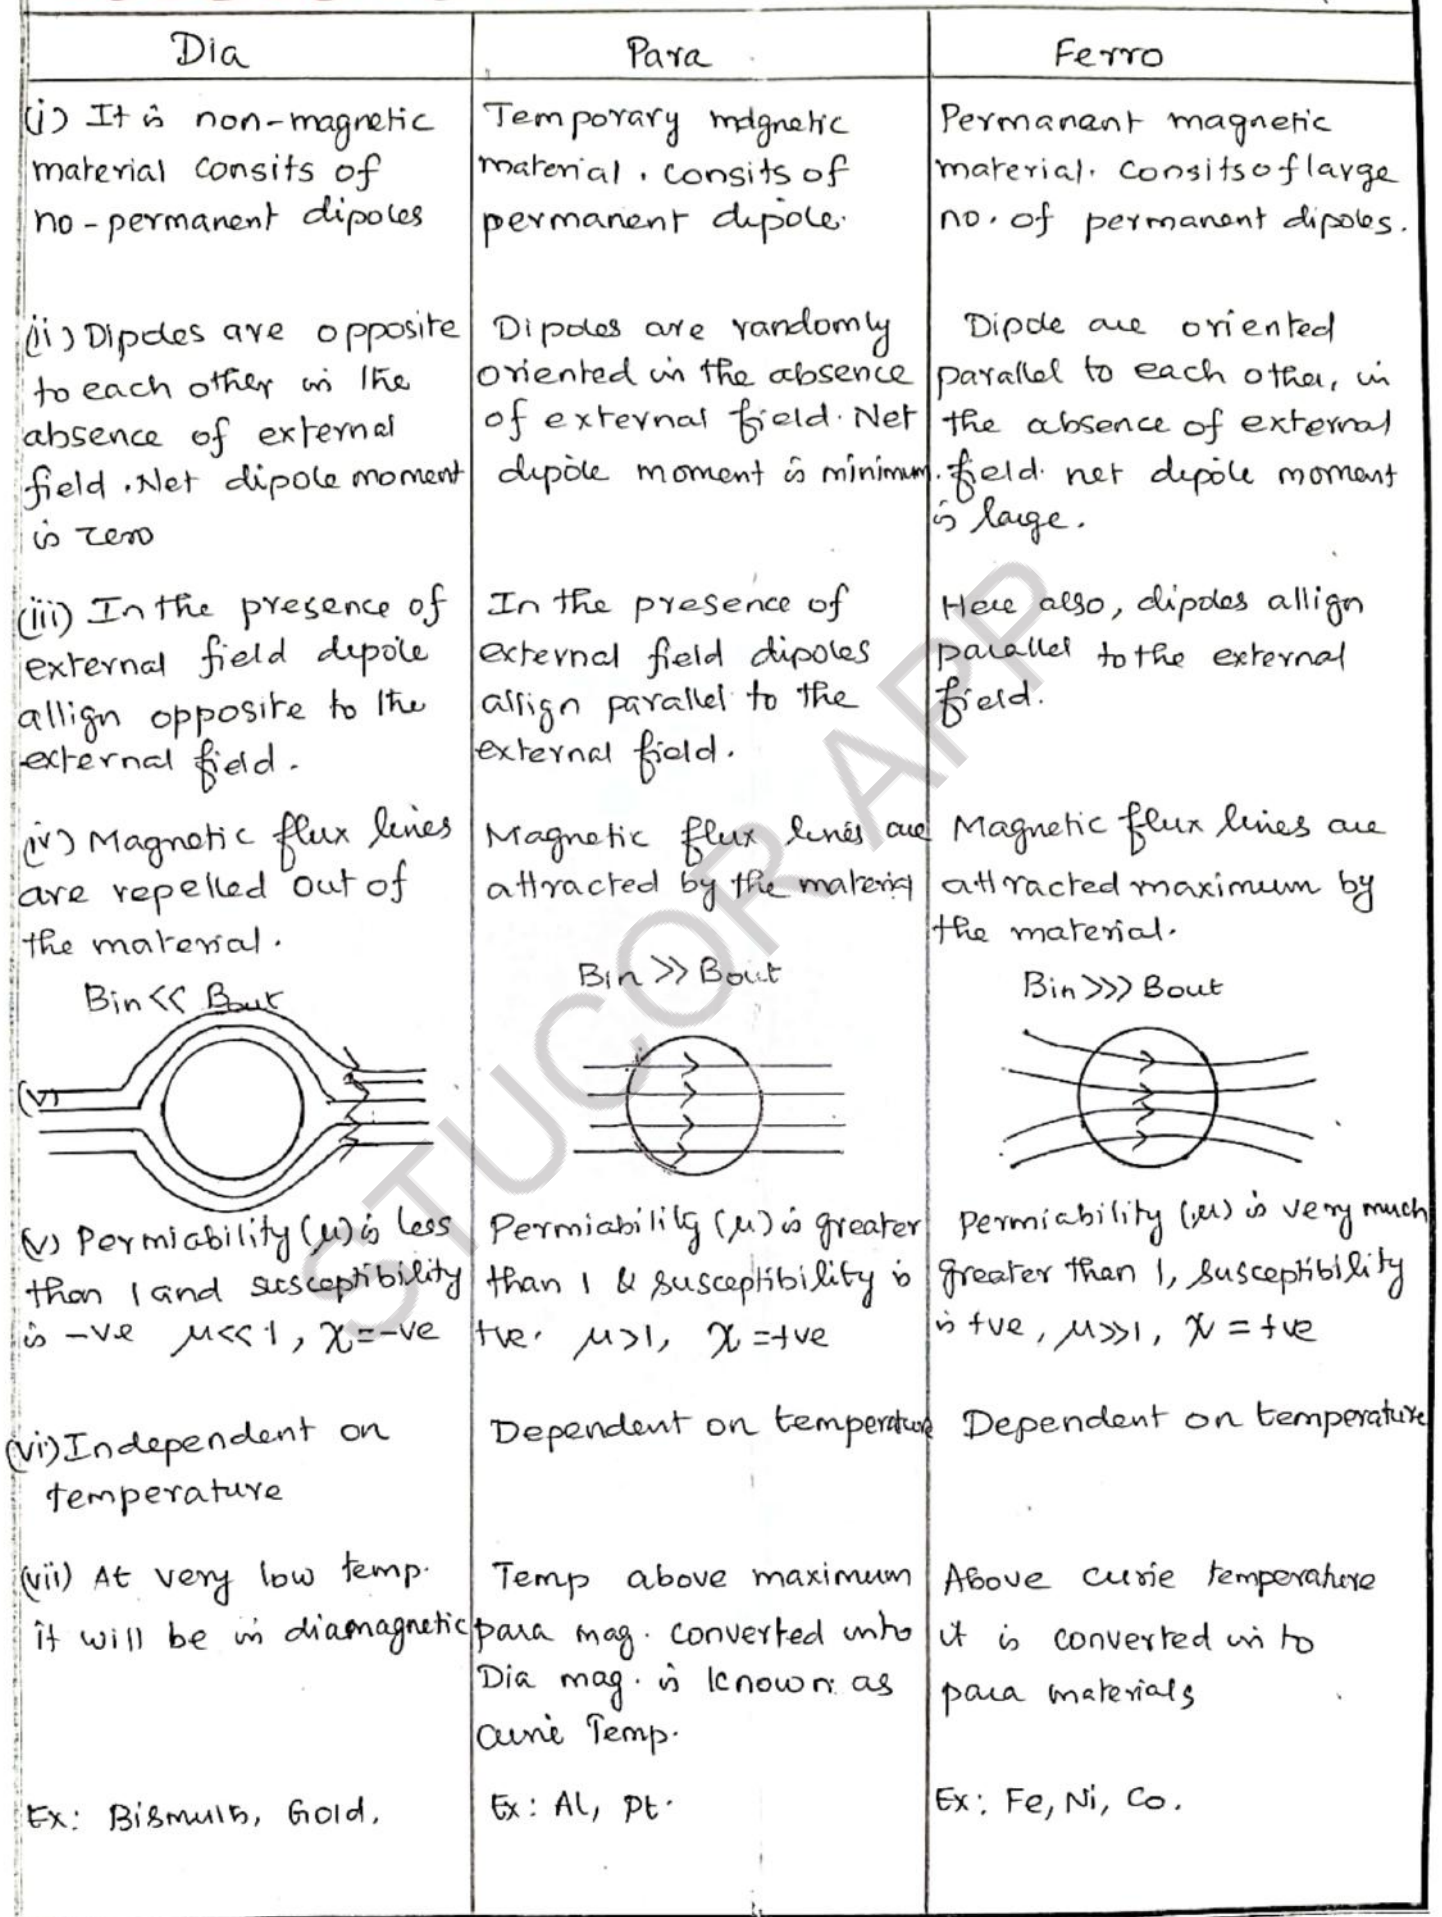 Dia
Para
Ferro
(i) It is non-magnetic
material consits of
no-permanent dipoles
Temporary magnetic
material. consits of
permanent dipole.
Permanant magnetic
material. Consits of large
no. of permanent dipoles.
(ii) Dipoles are opposite
to each other in the
absence of external
field. Net dipole moment
is zero
Dipoles are randomly
oriented in the absence
of external field. Net
dipole moment is minimum.
Dipole are oriented
parallel to each other, in
the absence of external
field. net dipole moment
is large.
(iii) In the presence of
external field dipole
allign opposite to the
external field.
In the presence of
external field dipoles
allign parallel to the
external field.
Here also, dipoles allign
parallel to the external
field.
(iv) Magnetic flux lines
are repelled out of
the material.
Bin << Bout
Magnetic flux lines are
attracted by the material
Bin >> Bout
Magnetic flux lines are
attracted maximum by
the material.
Bin >>> Bout
(v)
(v) Permiability (μ) is less
than 1 and susceptibility
is -ve μ<<1, χ=-ve
Permiability (μ) is greater
than 1 & susceptibility is
+ve. μ>1, χ=+ve
Permiability (μ) is very much
greater than 1, susceptibility
is +ve, μ>>1, χ=+ve
(vi) Independent on
temperature
Dependent on temperature
Dependent on temperature
(vii) At very low temp.
it will be in diamagnetic
Temp above maximum
para mag. converted into
Dia mag. is known as
curie Temp.
Above curie temperature
it is converted in to
para materials
Ex: Bismuth, Gold.
Ex: Al, Pt.
Ex: Fe, Ni, Co.
STUCOR APP